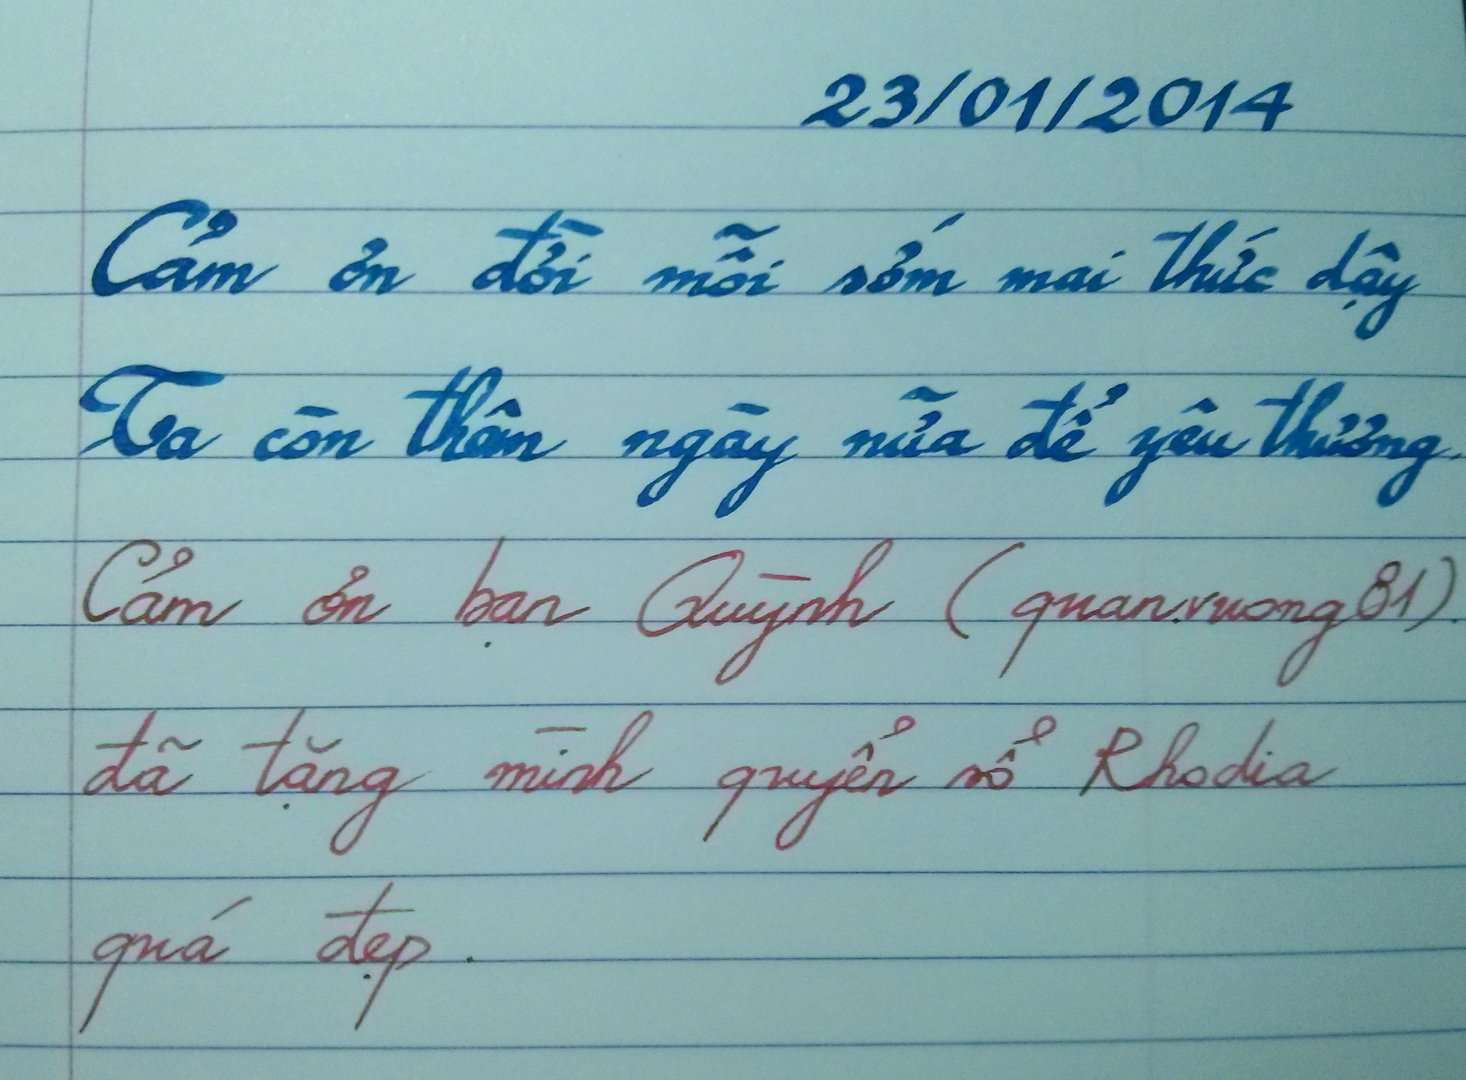 23/01/2014
Cảm ơn đời mỗi sớm mai thức dậy
Ta còn thêm ngày nữa để yêu thương.
Cảm ơn bạn Quỳnh (quan.vuong81)
đã tặng mình quyển sổ Rhodia
quá đẹp.